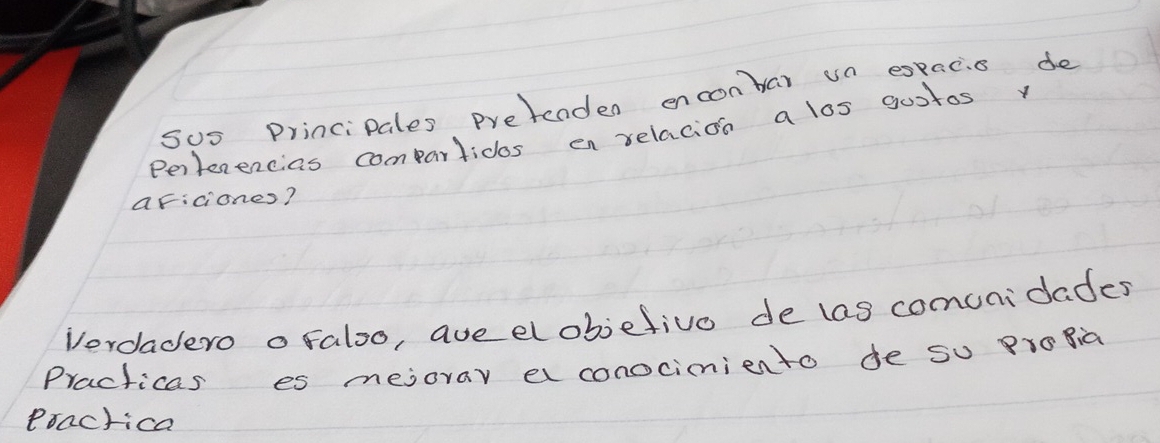 Sus Principales Pretenden encontrar un espacio de
Pertenencias compartidos en relación a los gustos y
aficiones?
Verdadero o Falso, que el objetivo de las comunidades
Practicas es mejorar el conocimiento de su propia
Practica